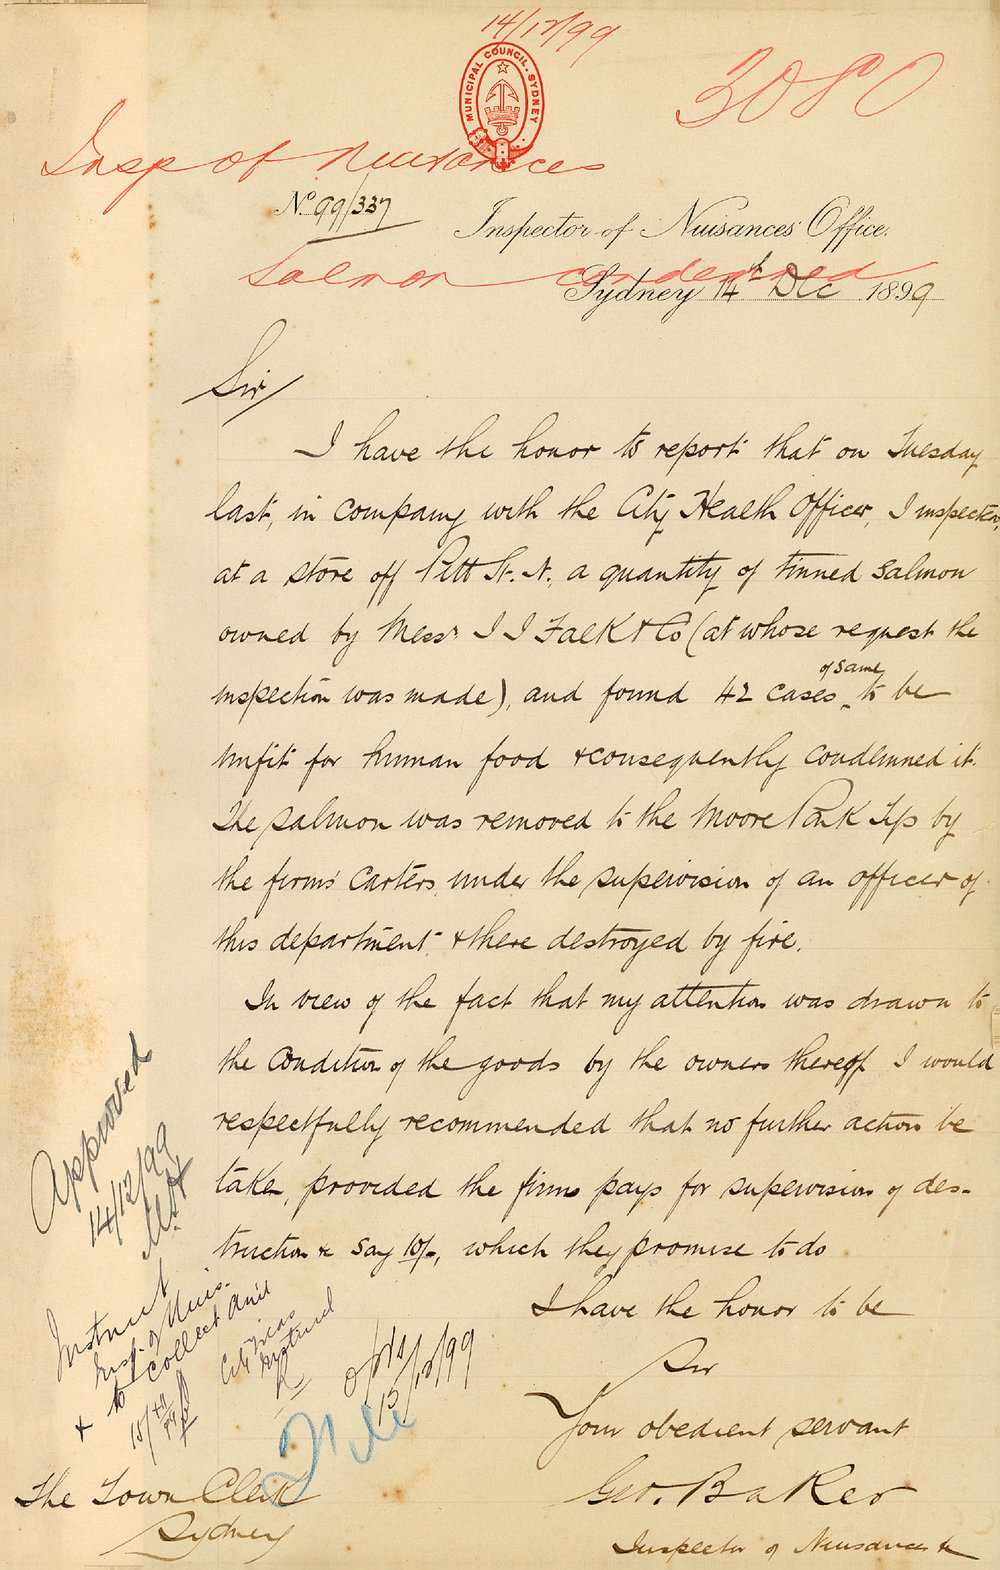 14/12/99
MUNICIPAL COUNCIL. SYDNEY
3080
Insp of Nuisances
No 99/337
Inspector of Nuisances Office.
Salmon condemned
Sydney 14th Dec 1899
Sir/
I have the honor to report that on Tuesday
last, in company with the City Health Officer, I inspected,
at a store off Pitt St. N., a quantity of tinned salmon
owned by Messrs I I Falk & Co (at whose request the
inspection was made), and found 42 cases of same to be
unfit for human food & consequently condemned it.
The salmon was removed to the Moore Park Tip by
the firms' carters under the supervision of an officer of
this department, & there destroyed by fire.
In view of the fact that my attention was drawn to
the condition of the goods by the owners thereof I would
respectfully recommended that no further action be
taken, provided the firms pays for supervision of des-
truction & say 10/-, which they promise to do
I have the honor to be
Sir
Your obedient servant
Geo. Baker
Inspector of Nuisances &c
Approved
14/12/99
Instruct
Insp. of Nuis.
& to collect am't
15/12/99
File
The Town Clerk
Sydney